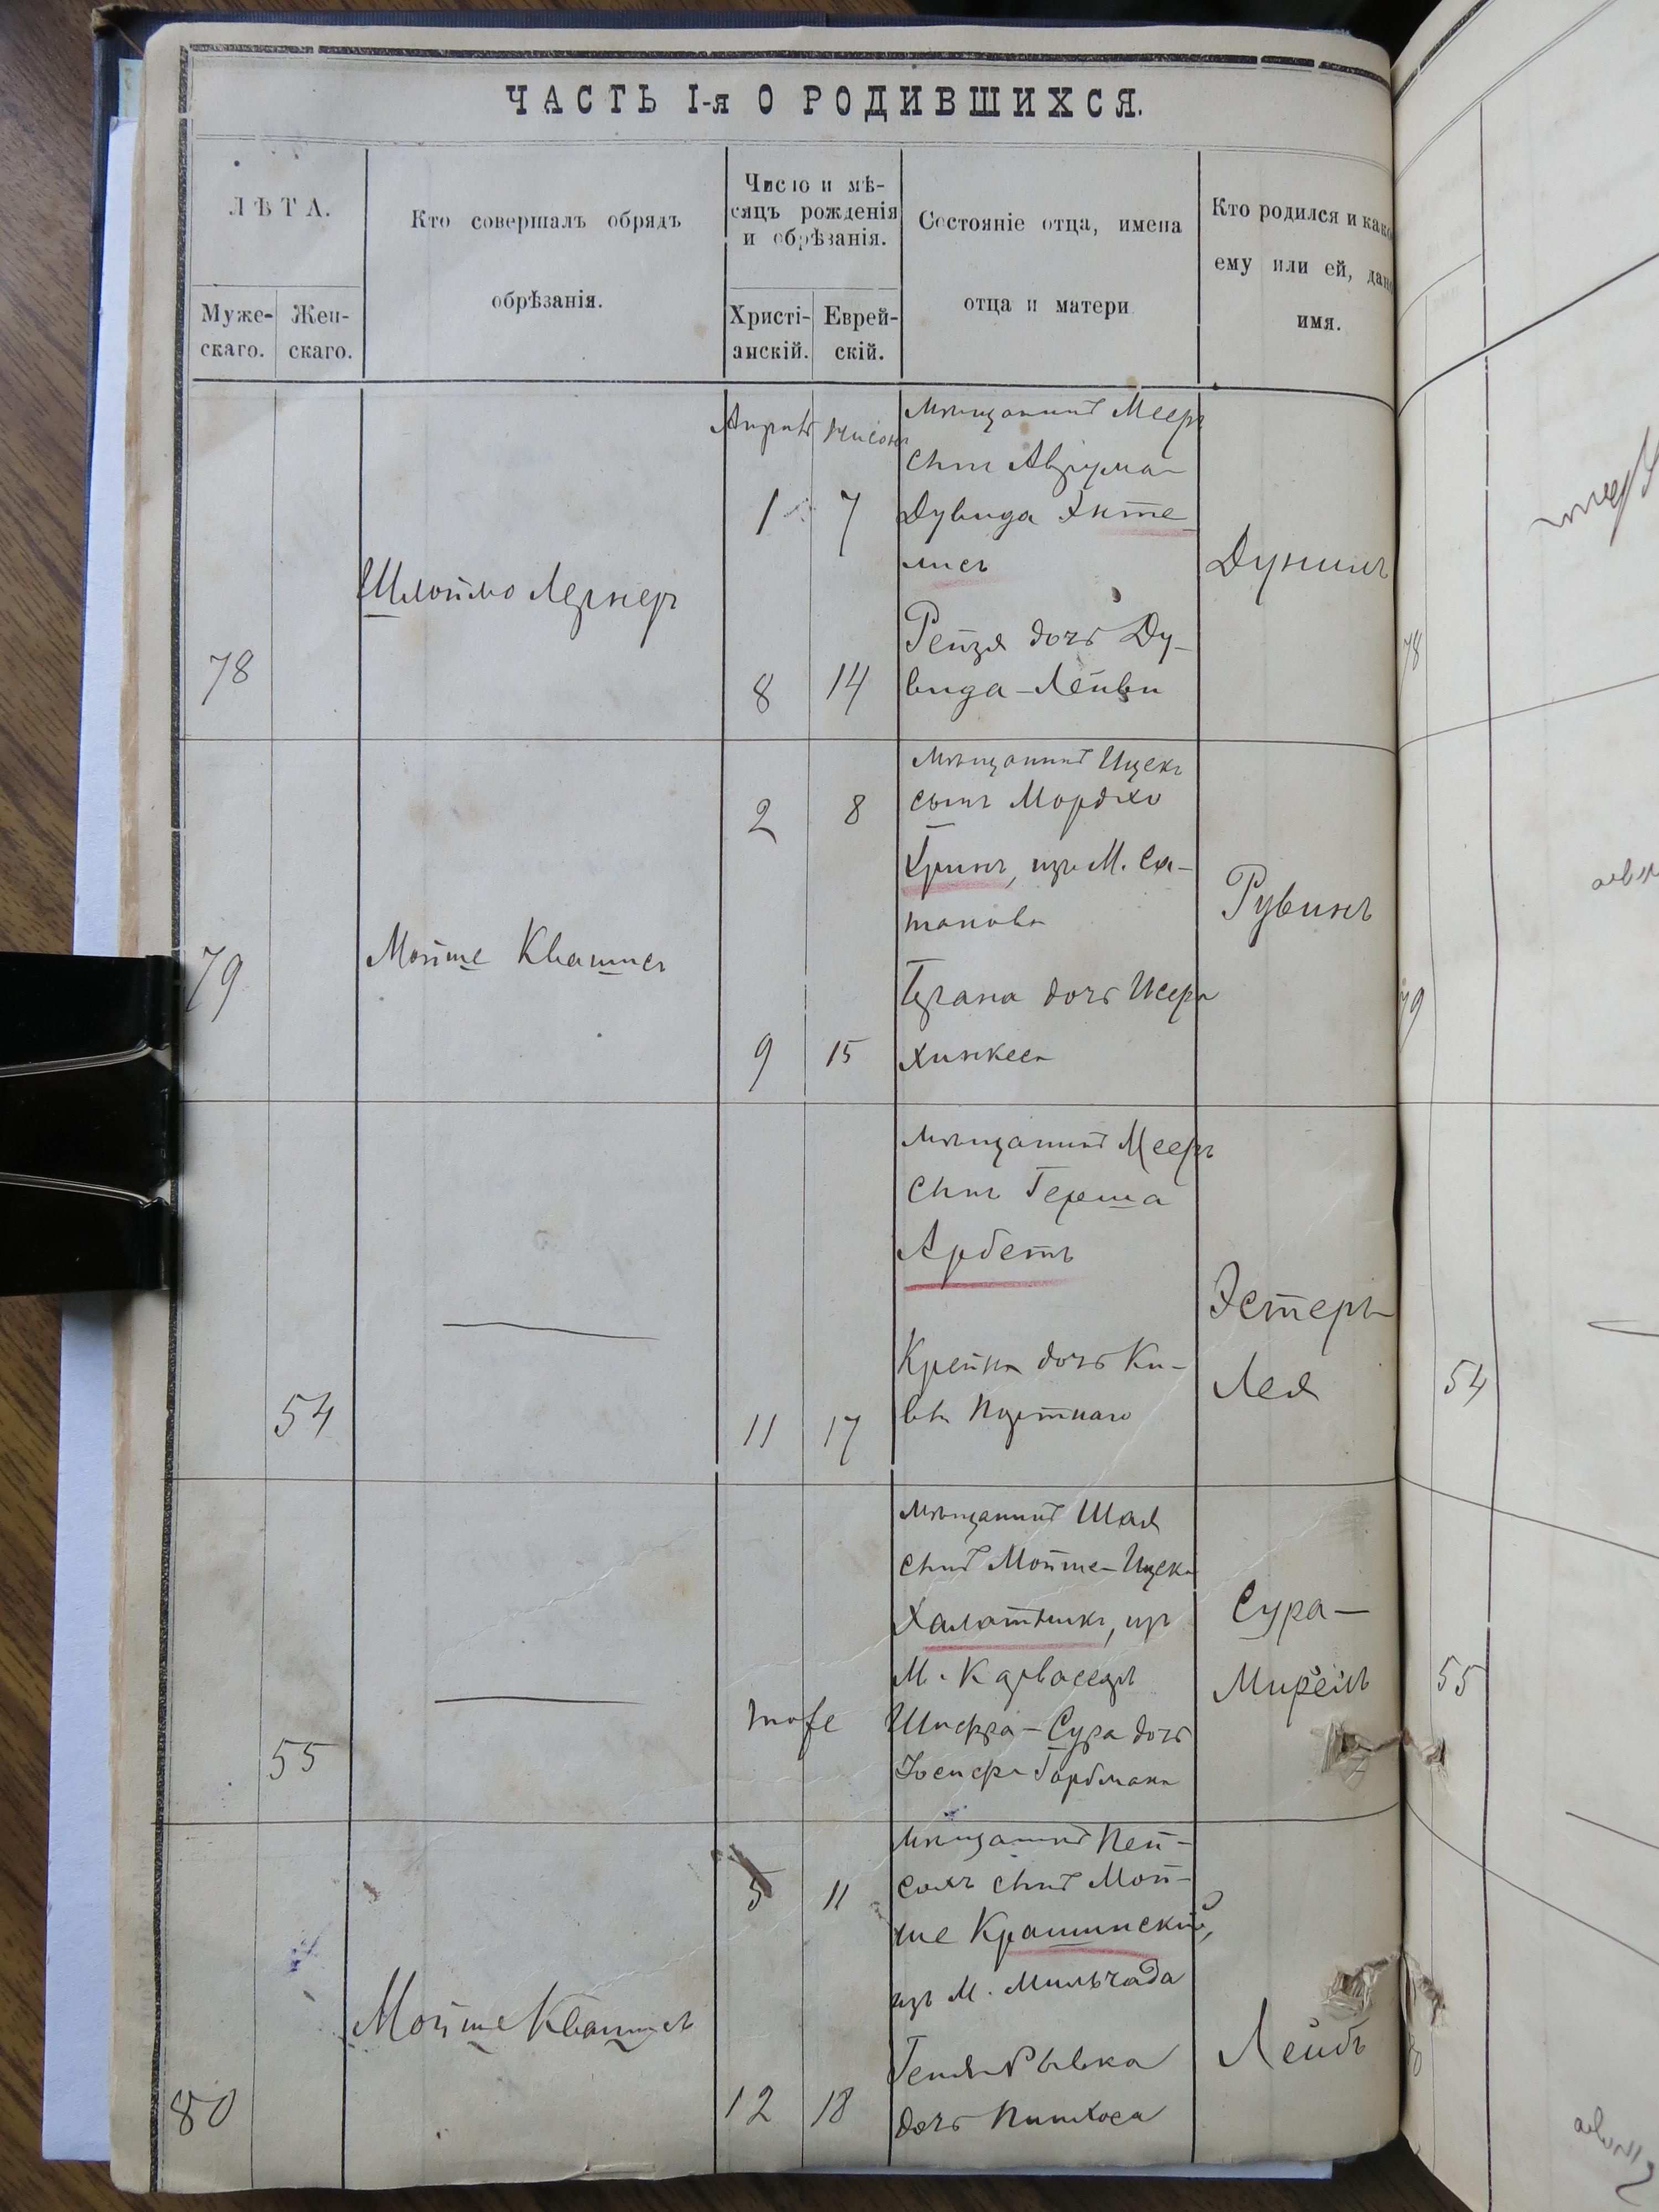 ЧАСТЬ I-я О РОДИВШИХСЯ.
ЛѢТА.
Муже-
скаго.
Жен-
скаго.
Кто совершалъ обрядъ
обрѣзанія.
Число и мѣ-
сяцъ рожденія
и обрѣзанія.
Христі-
анскій.
Еврей-
скій.
Состояніе отца, имена
отца и матери
Кто родился и како
ему или ей, дано
имя.
78
Шлоймо Лернеръ
Апрѣль Нисонъ
1 7
8 14
мѣщанинъ Мееръ
сынъ Аврума
Дувида
Рейзя дочь Ду-
вида-Лейви
78
79
Мойше Квашисъ
2 8
9 15
мѣщанинъ Ицекъ
сынъ Мордхо
из М. Са-
танова
дочь Исера
Рувинъ
79
54
11 17
мѣщанинъ Мееръ
сынъ Герша
Арбетъ
Крейна дочь Ки-
вы Портнаго
Эстеръ-
Лея
54
55
тоже
мѣщанинъ Шая
сынъ Мойше-Ицека
Халатникъ, изъ
М.
Шифра-Сура дочь
Іосифа Гарбмана
Сура-
Мирель
55
80
Мойше Квашисъ
5 11
12 18
мѣщанинъ Пей-
сахъ сынъ Мой-
ше Крашинскій,
изъ М. Мильчада
Геня-Рывка
дочь Пинхоса
Лейбъ